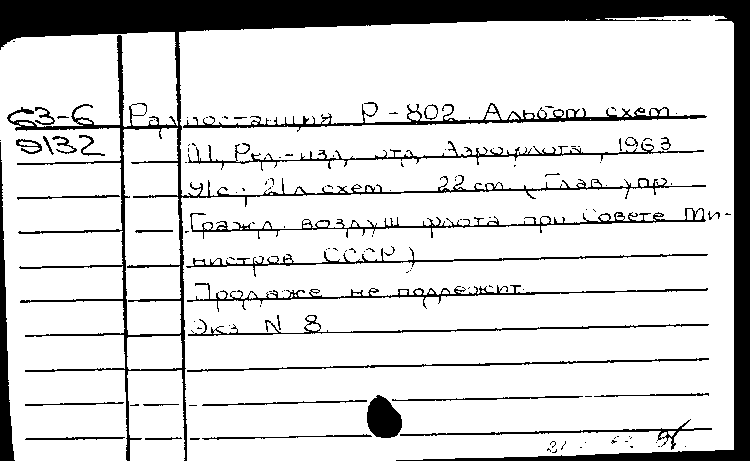 63-6 Радиостанция Р-802. Альбом схем.
9132 М., Ред.-изд. отд. Аэрофлота, 1963
41с.; 21л схем 22 см. (Глав. упр.
Гражд. воздуш. флота при Совете Ми-
нистров СССР)
Продаже не подлежит.
Экз N 8